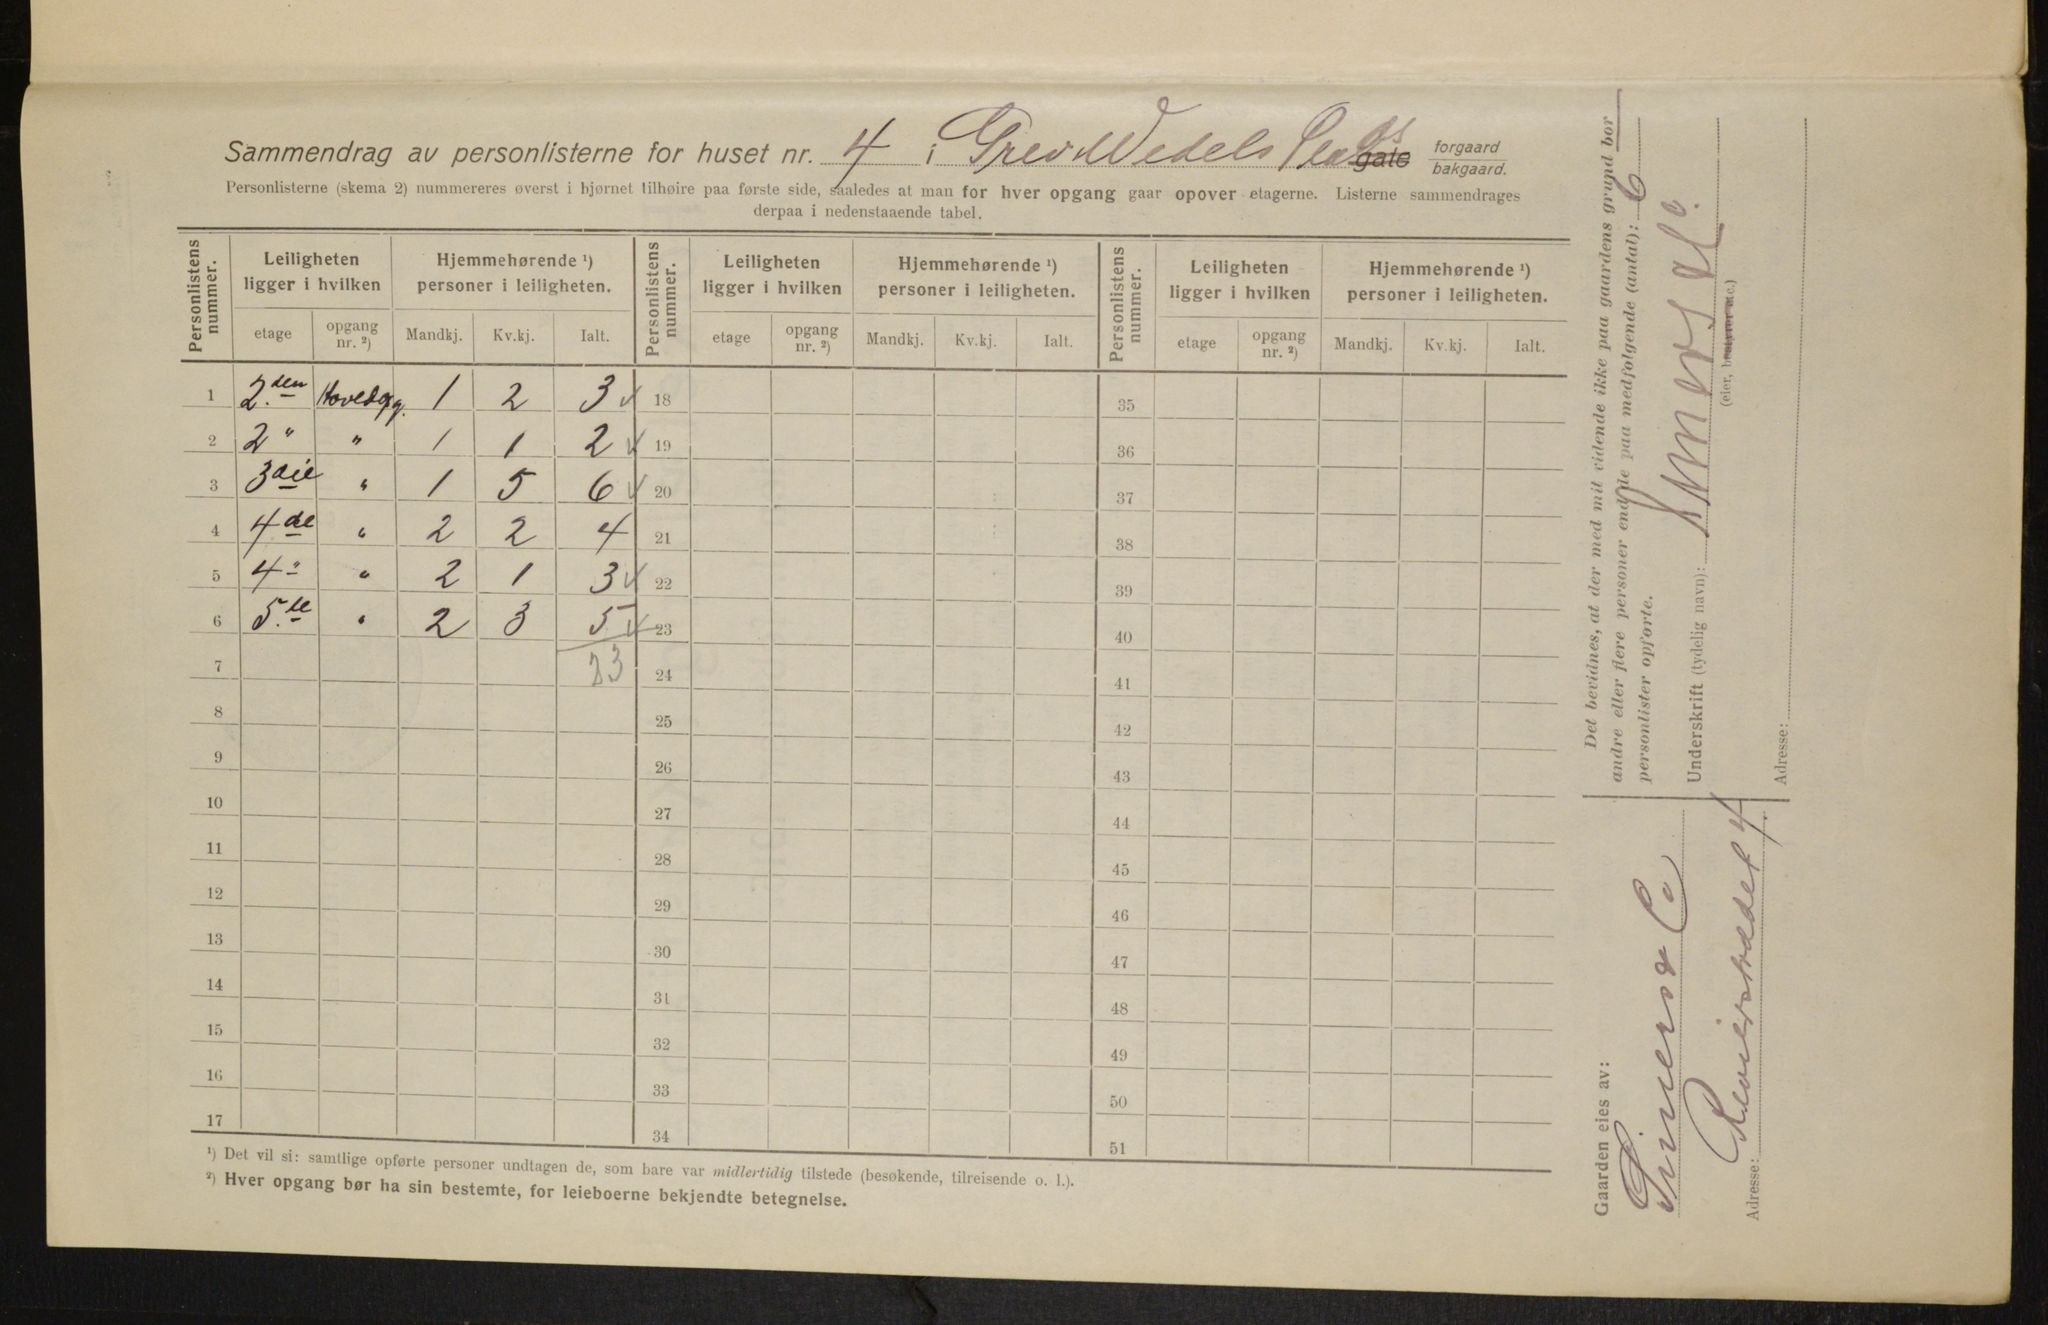 Sammendrag av personlisterne for huset nr. 4 i Grev Wedels Plads gate forgaard bakgaard.
Personlisterne (skema 2) nummereres øverst i hjørnet tilhøire paa første side, saaledes at man for hver opgang gaar opover etagerne. Listerne sammendrages
derpaa i nedenstaaende tabel.
Personlistens nummer. Leiligheten ligger i hvilken Hjemmehørende ¹) personer i leiligheten. Personlistens nummer. Leiligheten ligger i hvilken Hjemmehørende ¹) personer i leiligheten. Personlistens nummer. Leiligheten ligger i hvilken Hjemmehørende ¹) personer i leiligheten.
etage opgang nr. ²) Mandkj. Kv.kj. Ialt. etage opgang nr. ²) Mandkj. Kv.kj. Ialt. etage opgang nr. ²) Mandkj. Kv.kj. Ialt.
1 2.den Hovedopg. 1 2 3 ✓ 18 35
2 2 " " 1 1 2 ✓ 19 36
3 3die " 1 5 6 ✓ 20 37
4 4de " 2 2 4 21 38
5 4 " " 2 1 3 ✓ 22 39
6 5.te " 2 3 5 ✓ 23 40
7 23 24 41
8 25 42
9 26 43
10 27 44
11 28 45
12 29 46
13 30 47
14 31 48
15 32 49
16 33 50
17 34 51
¹) Det vil si: samtlige opførte personer undtagen de, som bare var midlertidig tilstede (besøkende, tilreisende o. l.).
²) Hver opgang bør ha sin bestemte, for leieboerne bekjendte betegnelse.
Det bevidnes, at der med mit vidende ikke paa gaardens grund bor
andre eller flere personer end de paa medfølgende (antal): 6
personlister opførte.
Underskrift (tydelig navn):
(eier, bestyrer etc.)
Adresse:
Gaarden eies av:
& Co
Adresse: Revierstrædet 4.